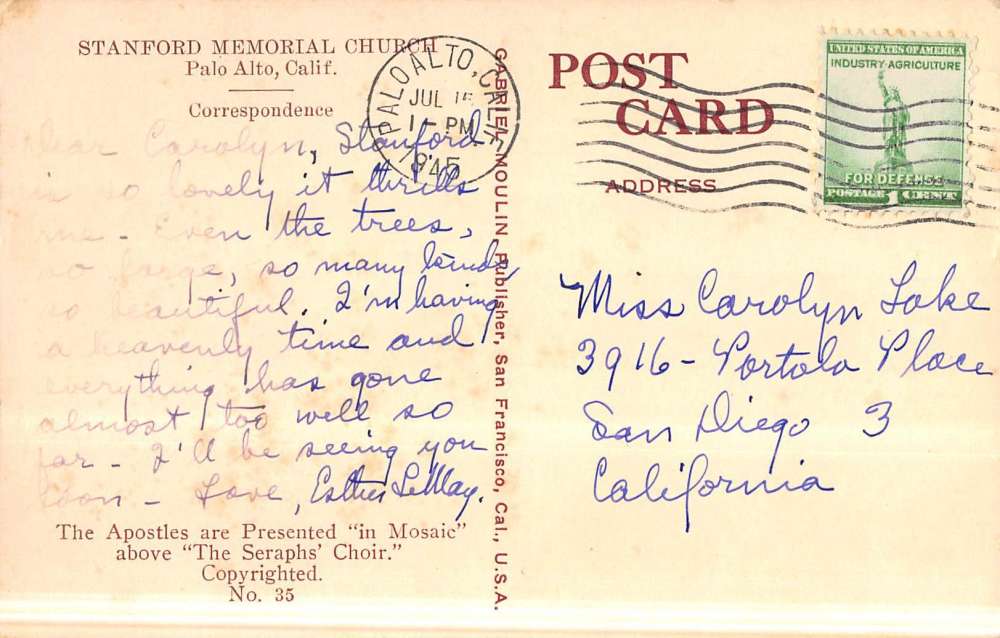 STANFORD MEMORIAL CHURCH
Palo Alto, Calif.
Correspondence
Dear Carolyn, Stanford
is so lovely it thrills
me - Even the trees,
so large, so many kinds,
so beautiful. I'm having
a heavenly time and
everything has gone
almost too well so
far - I'll be seeing you
soon - Love, Esther LeMay.
The Apostles are Presented "in Mosaic"
above "The Seraphs' Choir."
Copyrighted.
No. 35
GABRIEL MOULIN, Publisher, San Francisco, Cal., U.S.A.
PALO ALTO, CALIF.
JUL 15
PM
1945
POST
CARD
ADDRESS
UNITED STATES OF AMERICA
INDUSTRY · AGRICULTURE
FOR DEFENSE
POSTAGE 1 CENT
Miss Carolyn Lake
3916 - Portola Place
San Diego 3
California